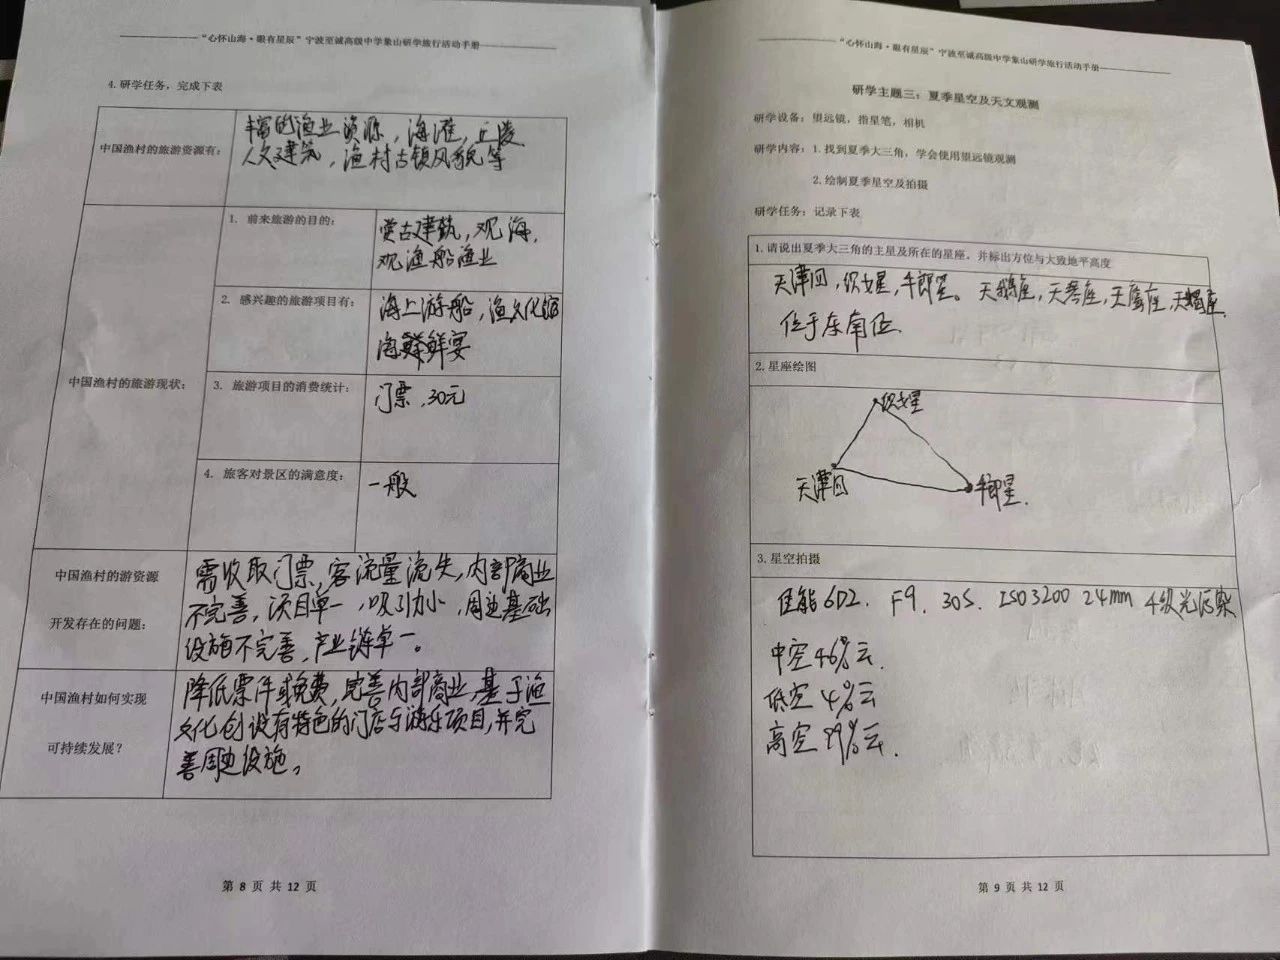 “心怀山海·眼有星辰”宁波至诚高级中学象山研学旅行活动手册
4.研学任务，完成下表
中国渔村的旅游资源有：
丰富的渔业资源，海滩，丘陵
人文建筑，渔村古镇风貌等
中国渔村的旅游现状：
1. 前来旅游的目的：
赏古建筑，观海，
观渔船渔业
2. 感兴趣的旅游项目有：
海上游船，渔文化馆
海鲜鲜宴
3. 旅游项目的消费统计：
门票，30元
4. 旅客对景区的满意度：
一般
中国渔村的游资源
开发存在的问题：
需收取门票，客流量流失，内部商业
不完善，项目单一，吸引力小，周边基础
设施不完善，产业链单一。
中国渔村如何实现
可持续发展？
降低票件或免费，完善内部商业，基于渔
文化创设有特色的门店与游乐项目，并完
善周边设施。
第 8 页 共 12 页
“心怀山海·眼有星辰”宁波至诚高级中学象山研学旅行活动手册
研学主题三：夏季星空及天文观测
研学设备：望远镜，指星笔，相机
研学内容：1.找到夏季大三角，学会使用望远镜观测
2.绘制夏季星空及拍摄
研学任务：记录下表
1.请说出夏季大三角的主星及所在的星座，并标出方位与大致地平高度
天津四，织女星，牛郎星。天鹅座，天琴座，天鹰座，天蝎座
位于东南位.
2.星座绘图
织女星
天津四
牛郎星.
3.星空拍摄
佳能6D2. F9. 30S. ISO3200 24mm 4级光污染
中空46%云.
低空4%云
高空99%云.
第 9 页 共 12 页